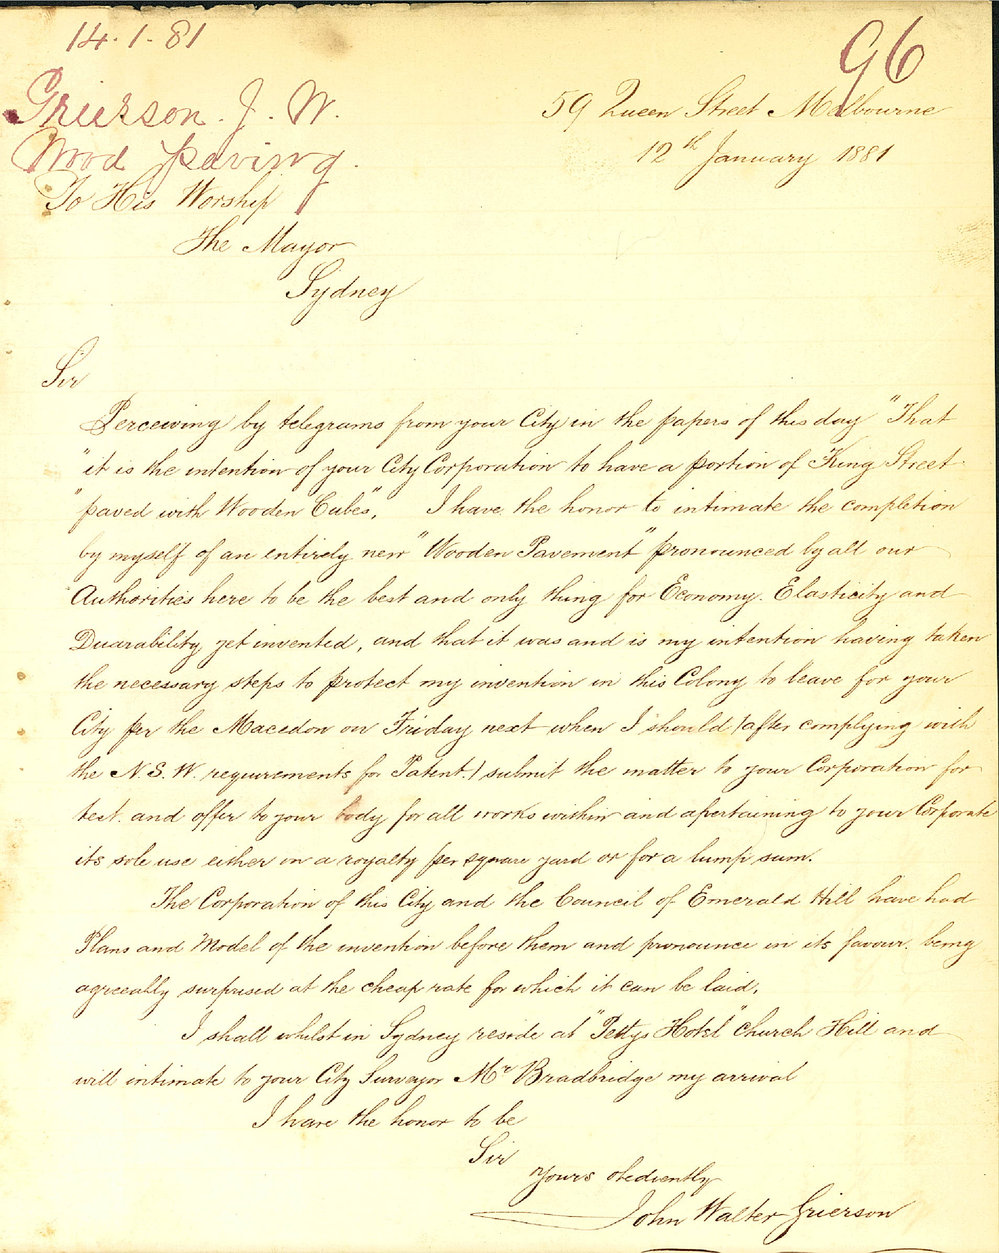 14.1.81
96
Grierson. J. W.
Wood paving.
59 Queen Street Melbourne
12th January 1881
To His Worship
The Mayor
Sydney
Sir
Perceiving by telegrams from your City in the papers of this day "That
"it is the intention of your City Corporation to have a portion of King Street
"paved with Wooden Cubes", I have the honor to intimate the completion
by myself of an entirely new "Wooden Pavement" pronounced by all our
Authorities here to be the best and only thing for Economy. Elasticity and
Duarability yet invented, and that it was and is my intention having taken
the necessary steps to protect my invention in this Colony to leave for your
City per the Macedon on Friday next when I should (after complying with
the N.S.W. requirements for Patent.) submit the matter to your Corporation for
test. and offer to your body for all works within and apertaining to your Corporate
its sole use either on a royalty per square yard or for a lump sum.
The Corporation of this City and the Council of Emerald Hill have had
Plans and Model of the invention before them and pronounce in its favour. being
agreeably surprised at the cheap rate for which it can be laid.
I shall whilst in Sydney reside at "Pettys Hotel" Church Hill and
will intimate to your City Surveyor Mr Bradbridge my arrival
I have the honor to be
Sir
Yours obediently
John Walter Grierson